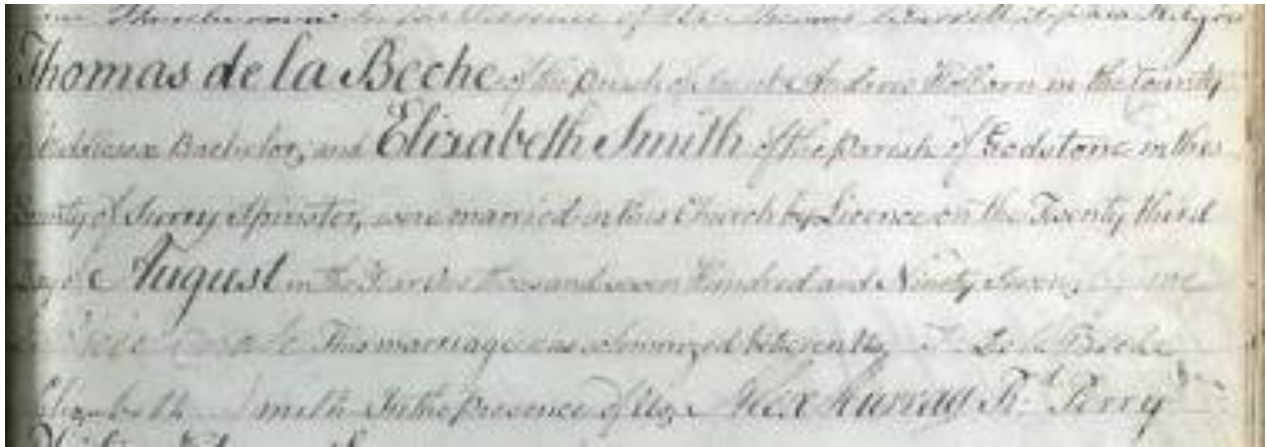 in the presence of
Thomas de la Beche of the Parish of Saint Andrew Holborn in the County
Bachelor, and Elizabeth Smith of the Parish of Godstone in this
County of Surry Spinster, were married in this Church by Licence on the Twenty third
August in the Year One thousand seven Hundred and Ninety Seven
This marriage was solemnized between Us, T De la Beche
Elizabeth Smith In the Presence of Us, Alex Murray Rd. Perry